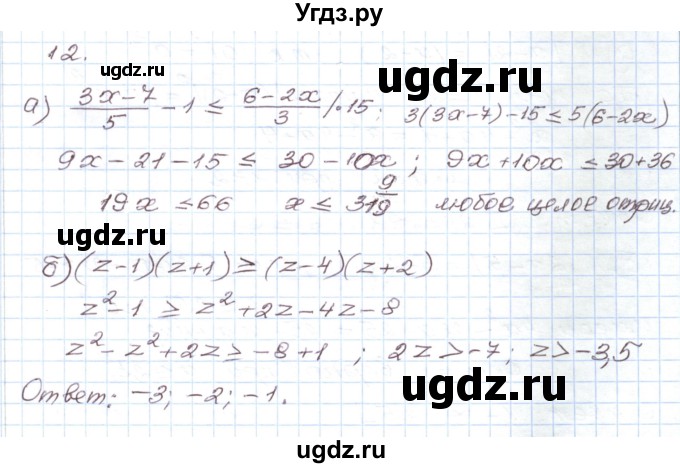 Угдз.ру
12.
ugdz.ru ugdz.ru
а) (3x-7)/5 - 1 ≤ (6-2x)/3 /·15; 3(3x-7)-15 ≤ 5(6-2x)
9x-21-15 ≤ 30-10x; 9x+10x ≤ 30+36
19x ≤ 66 x ≤ 3 9/19 любое целое отриц.
ugdz.ru
б) (z-1)(z+1) ≥ (z-4)(z+2)
z²-1 ≥ z²+2z-4z-8
z²-z²+2z ≥ -8+1 ; 2z > -7; z > -3,5
ugdz.ru
Ответ: -3; -2; -1.
ugdz.ru